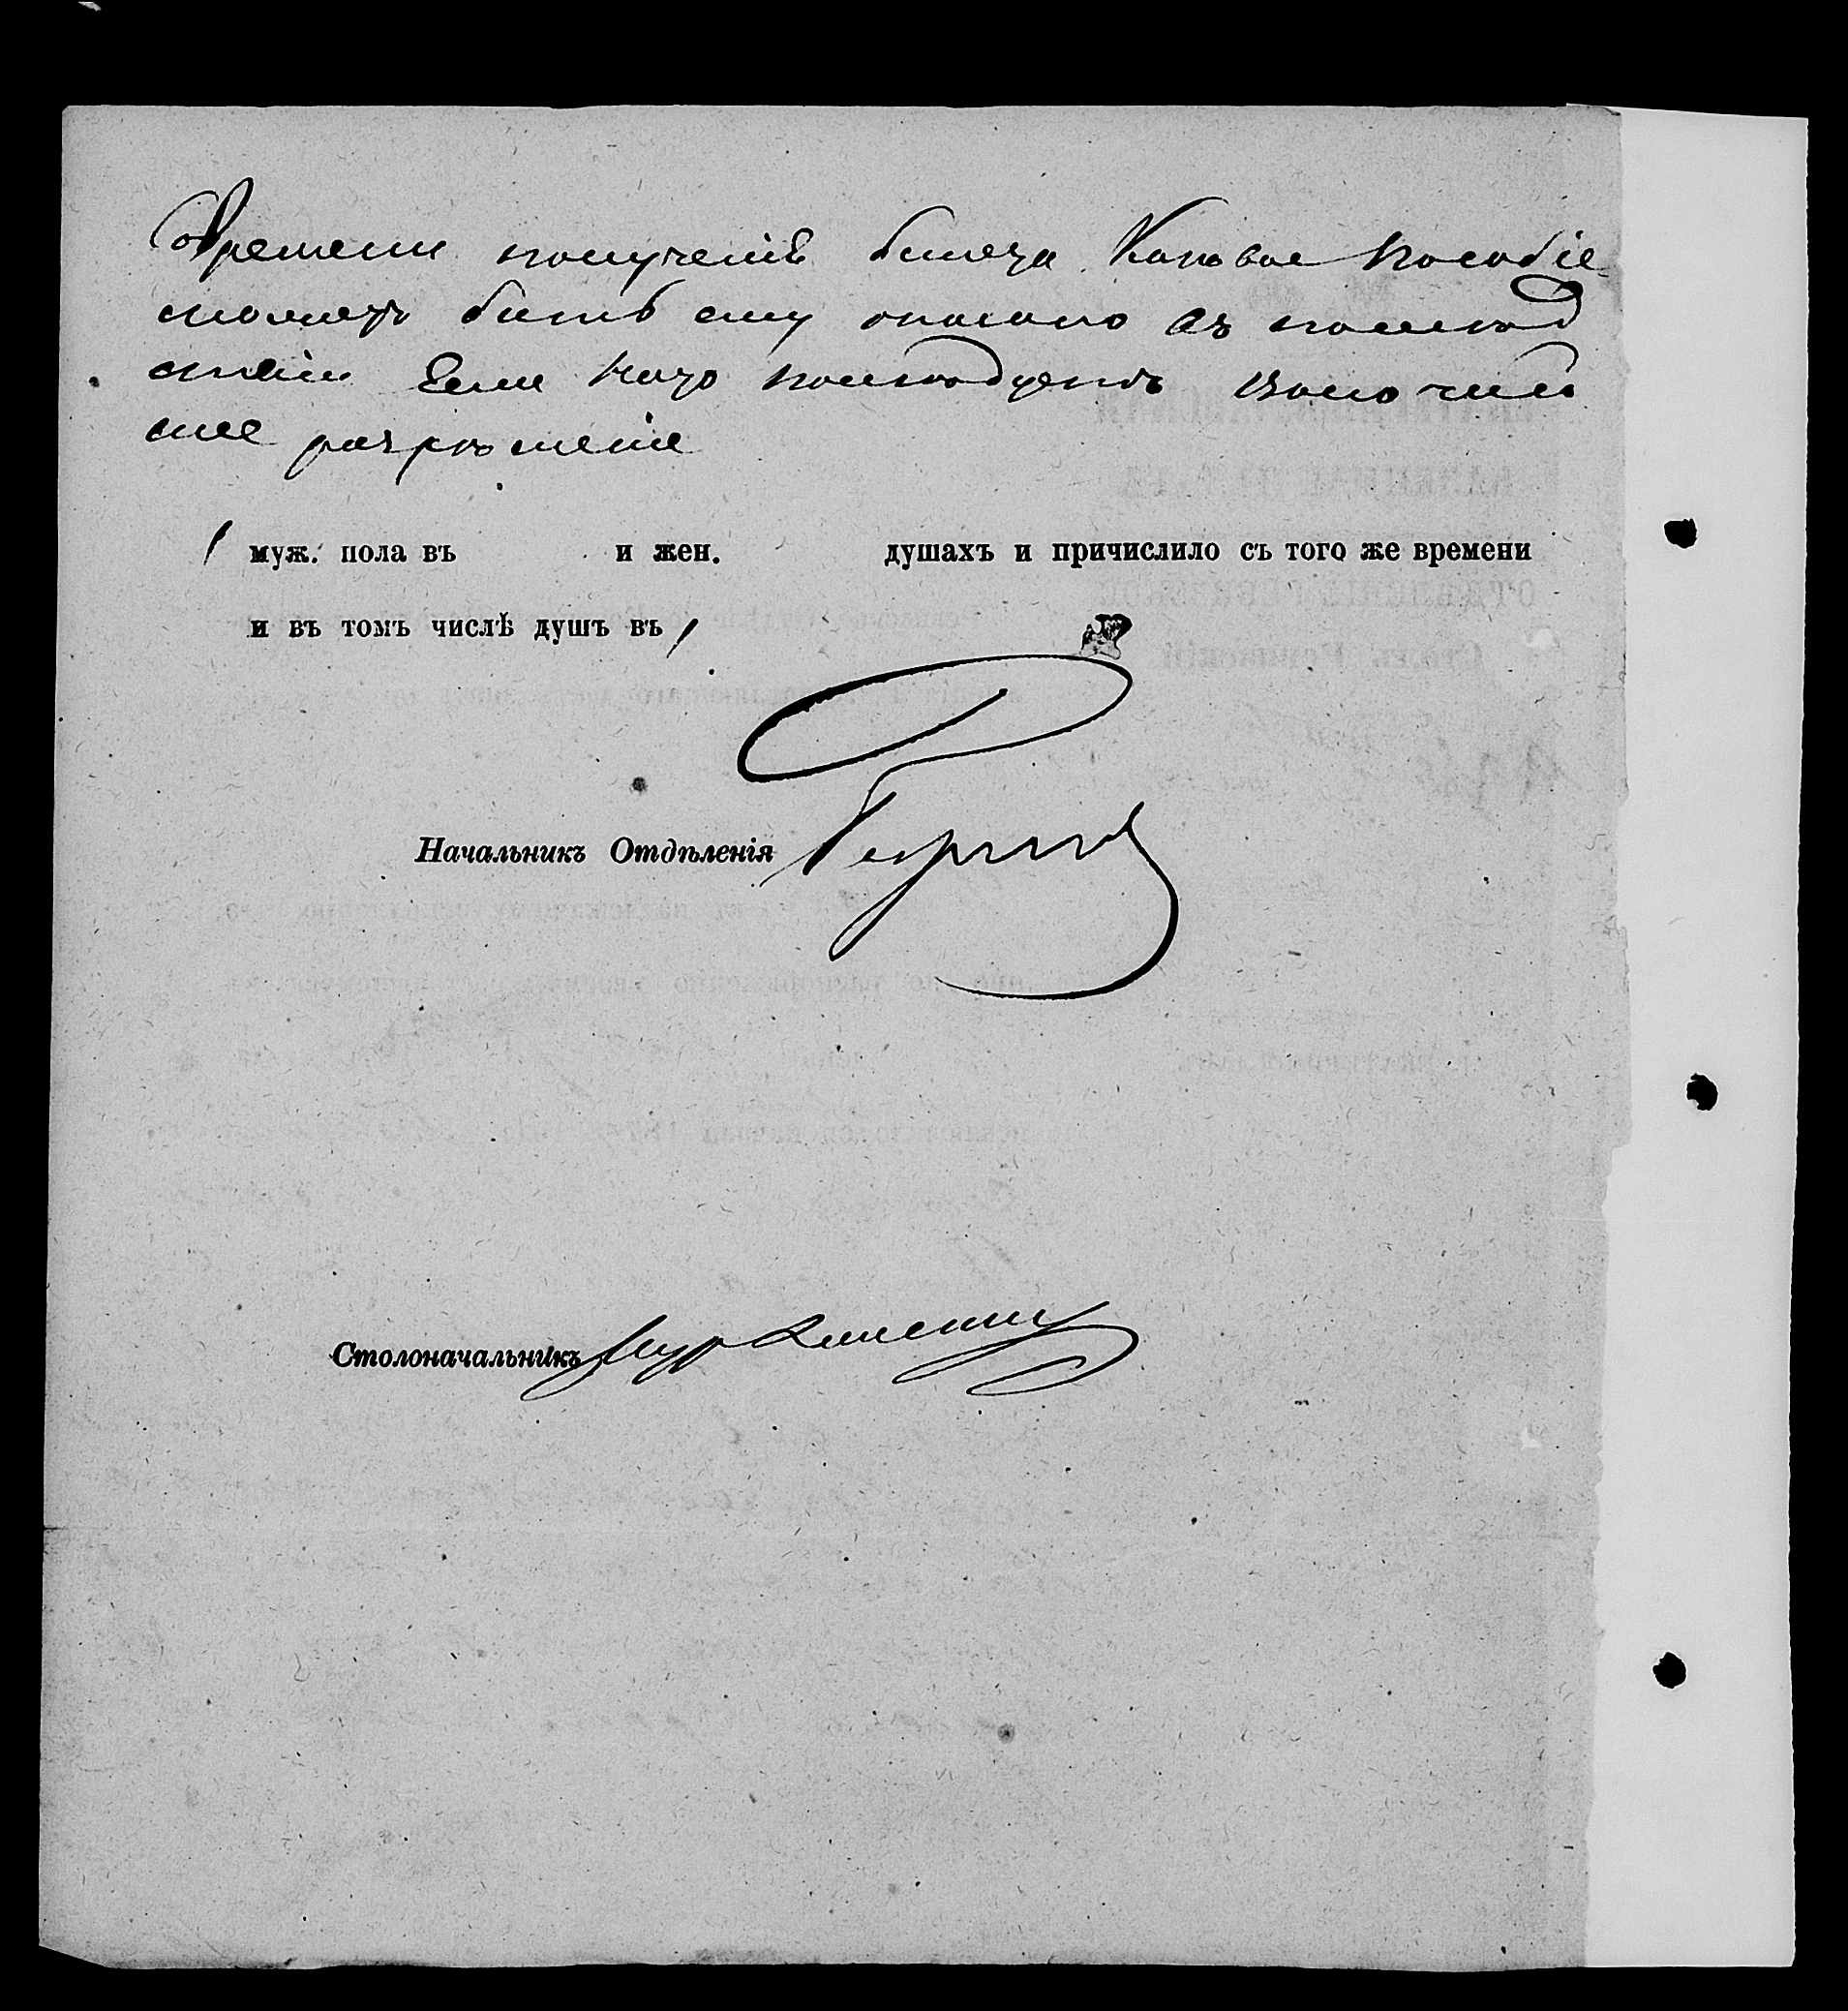 времени полученія билета. Каковое пособіе
можетъ быть ему оказано въ послѣд
ствіи Если на это послѣдуетъ Высочай
шее разрѣшеніе
муж. пола въ и жен. душахъ и причислило съ того же времени
и въ томъ числѣ душъ въ
Начальникъ Отдѣленія
Столоначальникъ